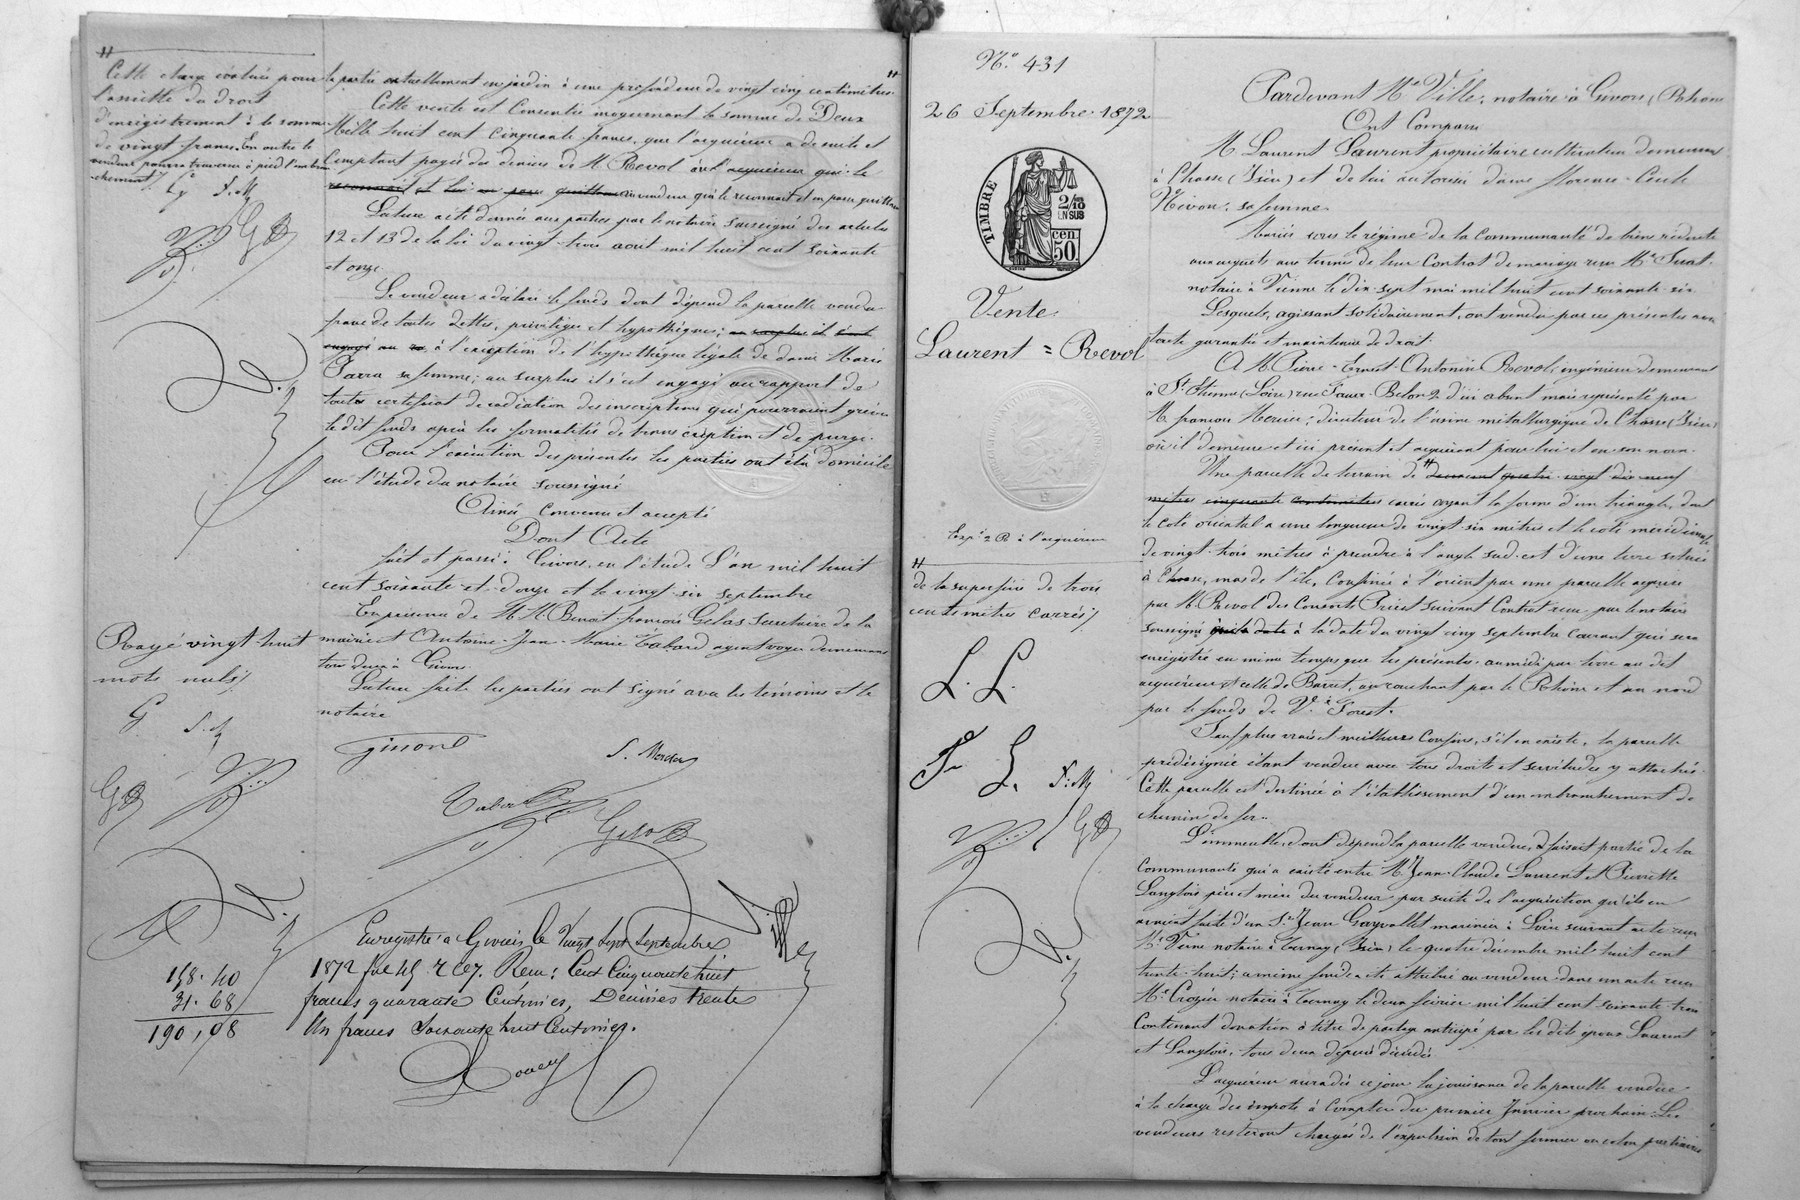 Cette charge évaluée pour
l'assiette du droit
d'enregistrement à la somme
de vingt francs. En outre le
vendeur pourra traverser à pied l'embran
chement
G S. M
la partie actuellement en jardin à une profondeur de vingt cinq centimètres.
Cette vente est Consentie moyennant la somme de Deux
Mille huit cent Cinquante francs, que l'acquéreur a de suite et
Comptant payée des deniers de M Revol au qui le
reconnait et lui en passe quittance vendeur qui le reconnait et en passe quittance
Lecture a été donnée aux parties par le notaire soussigné des articles
12 et 13 de la loi du vingt-trois août mil huit cent soixante
et onze.
Le vendeur a déclaré le fonds dont dépend la parcelle vendue
franc de toutes dettes, privilèges et hypothèques;
à l'exception de l'hypothèque légale de dame Marie
Parra sa femme; au surplus il s'est engagé au rapport de
toutes certificat de radiation des inscriptions qui pourraient grever
le dit fonds après les formalités de transcription et de purge.
Pour l'exécution des présentes les parties ont élu domicile
en l'étude du notaire soussigné
Ainsi convenu et accepté
Dont Acte
fait et passé à Givors, en l'étude L'an mil huit
cent soixante-et-douze et le vingt-six septembre
En présence de M.M. Benoit-françois Gelas Secrétaire de la
mairie et Antoine-Jean-Marie Tabard agent voyer demeurant
tous deux à Givors
Lecture faite les parties ont signé avec les témoins et le
notaire
Rayé vingt huit
mots nuls
G S. M
S. Mercier
Tabard
Gelas
Enregistré à Givors le Vingt Sept Septembre
1872 fol 45 r c 7. Reçu: Cent Cinquante huit
francs quarante Centimes, Décimes trente
Un francs Soixante huit Centimes.
158. 40
31. 68
190, 08
N° 431
26 Septembre 1872
TIMBRE
2/10
EN SUS
50
cen
Vente
Laurent = Revol
Exp. 2 R à l'acquéreur
de la superficie de trois
cents mètres carrés
L. L.
F L. F. M
Pardevant Me Ville, notaire à Givors, (Rhône
Ont Comparu
M Laurent Laurent propriétaire cultivateur demeurant
à Chasse (Isère) et de lui autorisée dame Florence-Cécile
Névon, sa femme
Mariés sous le régime de la Communauté de biens réduite
aux acquets aux termes de leur Contrat de mariage reçu Me
notaire à Vienne le dix-sept mai mil huit cent soixante-six
Lesquels, agissant solidairement, ont vendu par ces présentes avec
toute garantie et maintenue de droit.
A M. Pierre-Ernest-Antonin Revol, ingénieur demeurant
à St. Etienne (Loire) rue Faure-Belon 2 d'ici absent mais représenté par
M françois Mercier, directeur de l'usine métallurgique de Chasse (Isère)
où il demeure et ici présent et acquérant pour lui et en son nom.
Une parcelle de terrain de deux cent quatre-vingt dix-neuf
mètres cinquante centimètres carrés ayant la forme d'un triangle, dont
le coté oriental a une longueur de vingt-six mètres et le coté méridional
de vingt-trois mètres à prendre à l'angle sud-est d'une terre située
à Chasse, mas de l'île, Confinée à l'orient par une parcelle acquise
par M. Revol des Consorts suivant Contrat reçu par le notaire
soussigné à la date du vingt cinq septembre Courant qui sera
enregistré en même temps que les présentes, au midi par terre au dit
acquéreur et celle de Barret, au couchant par le Rhône et au nord
par le fonds de Ve Forest.
Sauf plus vrais et meilleurs Confins, s'il en existe, la parcelle
prédésignée étant vendue avec tous droits et servitudes y attachés.
Cette parcelle est destinée à l'établissement d'un embranchement de
chemin de fer.
L'immeuble, dont dépend la parcelle vendue, faisait partie de la
Communauté qui a existé entre M. Jean-Claude Laurent et Pierrette
Langlois père et mère du vendeur par suite de l'acquisition qu'ils en
avaient faite d'un Sr Jean marinier à Loire suivant acte reçu
Me Verne notaire à Ternay (Isère) le quatre décembre mil huit cent
trente-huit; a même fonds a été attribué au vendeur dans un acte reçu
Me Crozier notaire à Ternay le deux février mil huit cent soixante-trois
Contenant donation à titre de partage anticipé par les dits époux Laurent
et Langlois, tous deux depuis décédés
L'acquéreur aura dès ce jour la jouissance de la parcelle vendue
à la charge des impôts à Compter du premier Janvier prochain. Les
vendeurs resteront chargés de l'expulsion de tout fermier ou colon partiaire